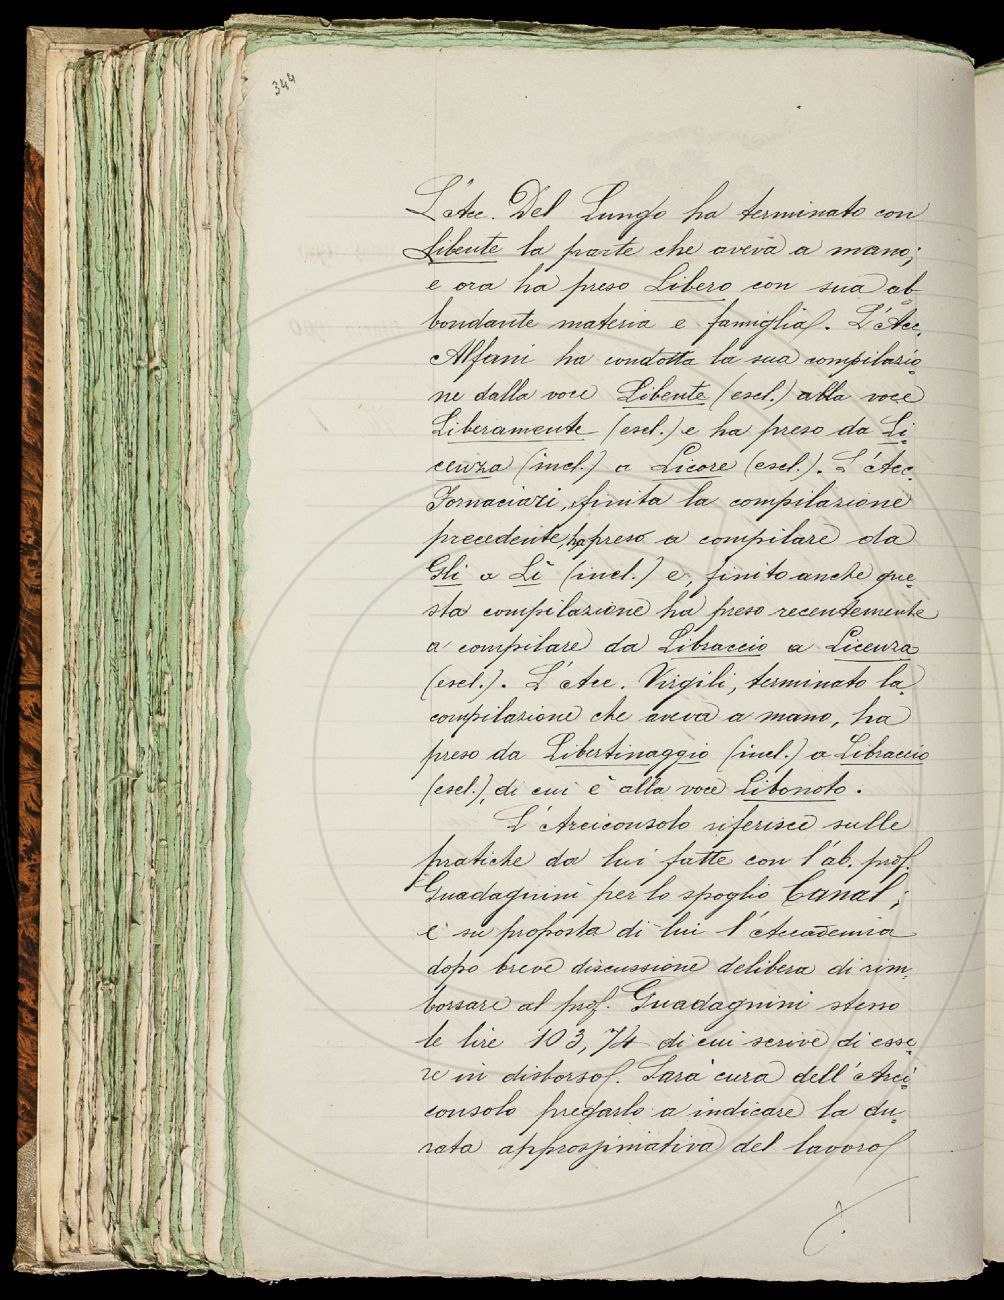 344
L'Acc. Del Lungo ha terminato con
Libente la parte che aveva a mano;
e ora ha preso Libero con sua ab=
bondante materia e famiglia. L'Acc.
Alfani ha condotta la sua compilazio=
ne dalla voce Libente (escl.) alla voce
Liberamente (escl.) e ha preso da Li=
cenza (incl.) a Licore (escl.). L'Acc.
Fornaciari, finita la compilazione
precedente, ha preso a compilare da
Gli a Lì (incl.) e, finito anche que=
sta compilazione ha preso recentemente
a compilare da Libraccio a Licenza
(escl.). L'Acc. Virgili, terminato la
compilazione che aveva a mano, ha
preso da Libertinaggio (incl.) a Libraccio
(escl.), di cui è alla voce Libonoto.
L'Arciconsolo riferisce sulle
pratiche da lui fatte con l'ab. prof.
Guadagnini per lo spoglio Canal;
e su proposta di lui l'Accademia
dopo breve discussione delibera di rim=
borsare al prof. Guadagnini stesso
le lire 103,74 di cui scrive di esse=
re in disborso. Sarà cura dell'Arci=
consolo pregarlo a indicare la du=
rata approssimativa del lavoro